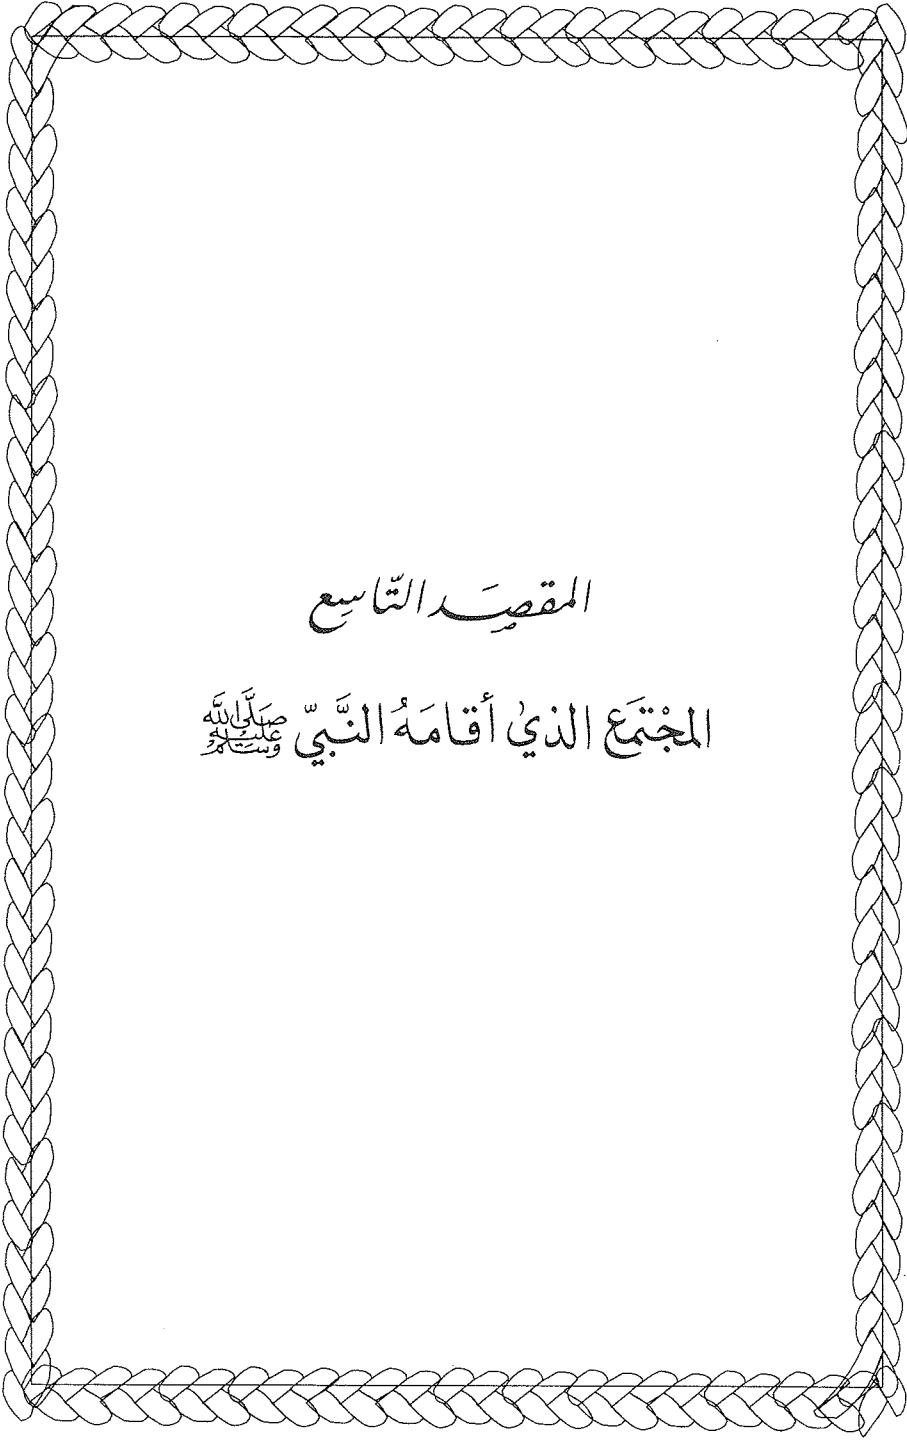 المقصَد التّاسِع
المجْتَمَع الذي أقامَهُ النَّبيّ ﷺ